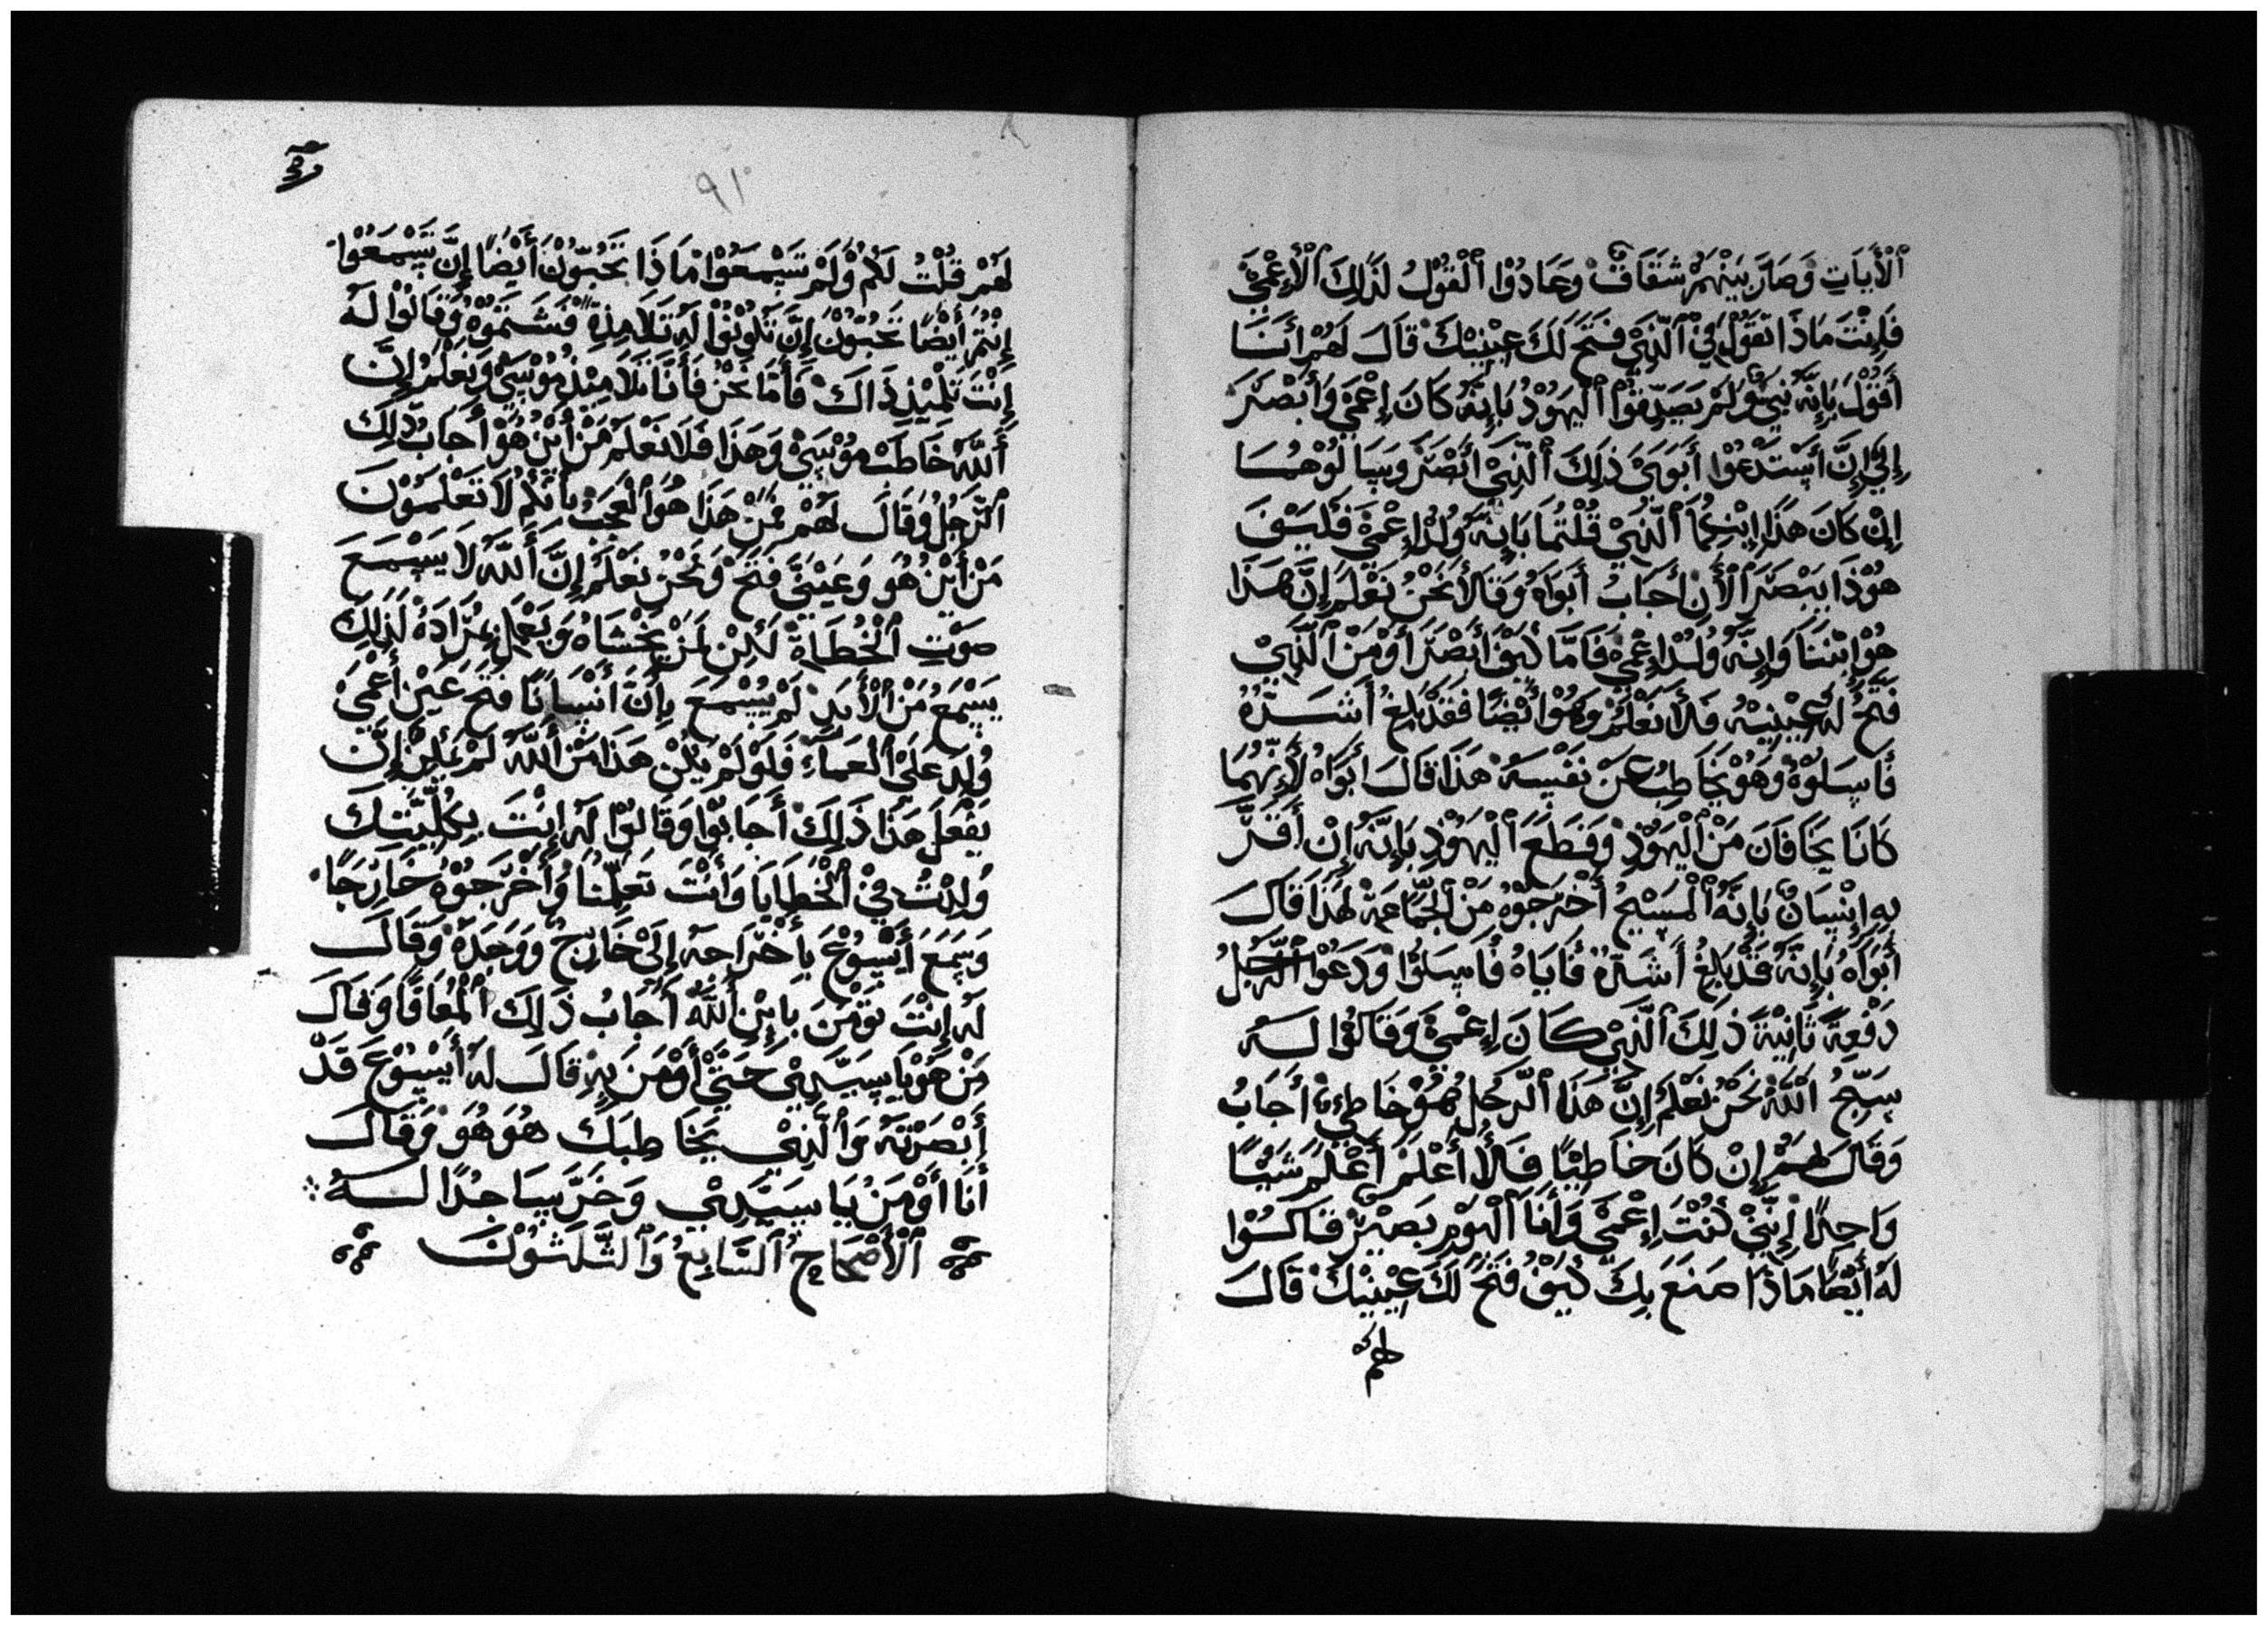 ٱلْأَيَاتِ وَصَارَ بَيْنَهُمْ شَقَاقٌ وَعَادُوْا ٱلْقَوْلُ لَذَٰلِكَ ٱلْإِعْمَىْ
فَإِنْتَ مَاذَا تَقُوْلُ فِيْ ٱلَّذِيْ فَتَحَ لَكَ عِيْنِيْكَ قَالَ لَهُمْ أَنَا
أَقُوْلُ بِإِنَّهُ نَبِيٌّ وَلَمْ يَصَدِّقُوْا ٱلْيَهُوْدُ بَإِنَّهُ كَانَ إِعْمَى وَأَبْصَرَ
إِلَىْ إِنَّ أَسْتَدْعُوْا أَبَوَىْ ذَلِكَ ٱلَّذِيْ أَبْصَرَ وَسَالُوْهُمَا
إِنْ كَانَ هَذَا إِبْنِكُمَا ٱلَّذِيْ قُلْتُمَا بَإِنَّهُ وُلِدْ إِعْمَىْ فَكَيْفَ
هُوْذَا يَبْصَرَ ٱلْأَنَ أَجَابُ أَبَوَاهُ وَقَالَا نَحْنُ نَعْلَمُ إِنَّ هَذَا
هُوْ إِبْنَنَا وَإِنَّهُ وُلِدْ إِعْمَىْ فَامَّا كَيْفَ أَبْصَرَ أَوْ مَنْ ٱلَّذِيْ
فَتَحَ لَهُ عِيْنِيْهِ فَلَا نَعْلَمْ وَهُوْ أَيْضًا فَقَدْ بَلِغَ أَشَدُّهُ
فَاسَلُوْهُ وَهُوْ يَخَاطِبُ عَنْ نَفْسِهُ هَذَا قَالَ أَبَوَاهُ لَأَنَّهُمَا
كَانَا يَخَافَانَ مَنْ ٱلْيَهُوْدِ وَقَطَعَ ٱلْيَهُوْدِ بَإِنَّهُ إِنْ أَقَرَّ
بِهِ إِنْسَانٌ بَإِنَّهُ ٱلْمَسِيْحُ أَخْرَجُوْهُ مَنْ ٱلْجَمَاعَةْ لَهَذَا قَالَ
أَبَوَاهُ بَإِنَّهُ قَدْ بَلِغَ أَشَدَّهُ فَايَاهُ فَاسَلُوْا وَدَعَوْا ٱلرَّجُلُ
دَفْعِةً ثَانِيَةً ذَلِكَ ٱلَّذِيْ كَانَ إِعْمَىْ وَقَالُوْا لَهُ
سَبِّحُ ٱللّٰهَ نَحْنُ نَعْلَمُ إِنَّ هَذَا ٱلرَّجُلُ هُوْ خَاطِىٌ أَجَابُ
وَقَالَ لَهُمْ إِنْ كَانَ خَاطِئًا فَلَا أَعْلَمْ أَعْلَمُ شَيًْا
وَاحِدًا إِنِّيْ كُنْتَ إِعْمَىْ وَأَنَا ٱلْيَوْمِ بَصِيْرْ قَالُوْا
لَهُ أَيْضًا مَاذَا صَنَعَ بِكَ كَيْفَ فَتَحَ لَكَ عِيْنِيْكَ قَالَ
لهم
٩١
لَهُمْ قَلْتُ لَكُمْ وَلَمْ تَسْمَعُوْا مَاذَا تَحُبُّوْنَ أَيْضًا إِنَّ تَسْمَعُوْا
إِنْتُمْ أَيْضًا تَحُبُّوْنَ إِنَّ تَكُوْنُوْا لَهُ تَلَامِذِةً فَشَتَمُوْهُ وَقَالُوْا لَهُ
إِنْتَ تَلْمِيْذِ ذَاكَ فَأَمَّا نَحْنُ فَأَنَا تَلَامِيْذِ مُوْسَىْ وَنَعْلَمُ إِنَّ
أَللّٰهَ خَاطَبَ مُوْسَىْ وَهَذَا فَلَا نَعْلَمْ مَنْ أَيْنَ هُوْ أَجَابُ ذَلِكَ
ٱلرَّجُلُ وَقَالَ لَهُمْ مَنْ هَذَا هُوْ ٱلْعَجَبُ بِأَنَّكُمْ لَا تَعْلَمُوْنَ
مَنْ أَيْنَ هُوَ وَعَيْنَيَّ فَتَحَ وَنَحْنُ نَعْلَمُ إِنَّ أَللّٰهَ لَا يَسْمَعَ
صَوْتِ ٱلْخُطَاةْ لَكِنْ لَمَنْ يَخْشَاهُ وَيَعْمَلُ مُرَادَهُ لَذَلِكَ
يَسْمَعُ مَنْ ٱلْأَبَدِ لَمْ يُسْمَعَ بِإِنَّ أَنْسَانًا فَتَحَ عَيْنَ أَعْمَىْ
وُلِدَ عَلَىْ ٱلْعَمَاءِ فَلَوْ لَمْ يَكُنْ هَذَا مَنْ أَللّٰهَ لَمْ يُمْكِنْ إِنَّ
يَفْعَلَ هَذَا ذَلِكَ أَجَابُوْا وَقَالُوْا لَهُ إِنْتَ بِكُلِّيَّتِكَ
وُلِدْتُ فِيْ ٱلْخَطَايَا وَأَنْتَ تَعَلِّمُنَا وَأَخْرَجُوْهُ خَارِجًا
وَسِمَعَ أَيْسُوْعَ بِأَخْرَاجِهُ إِلَىْ خَارِجٌ وَوَجَدَهُ وَقَالَ
لَهُ إِنْتَ تَوْمَنَ بِإِبْنِ أَللّٰهَ أَجَابُ ذَلِكَ ٱلْمُعَافًا وَقَالَ
مَنْ هُوْ يَا سَيَّدِيْ حَتَّىْ أَوْمَنَ بِهِ قَالَ لَهُ أَيْسُوْعَ قَدْ
أَبْصَرْتَهُ وَٱلَّذِيْ يَخَاطِبَكَ هُوَ هُوَ وَقَالَ
أَنَا أَوْمَنُ يَا سَيَّدِيْ وَخَرَّ سَاجِدًا لَهُ
ٱلْأَصْحَاحِ ٱلسَّابِعُ وَٱلثَّلَثُوْنَ